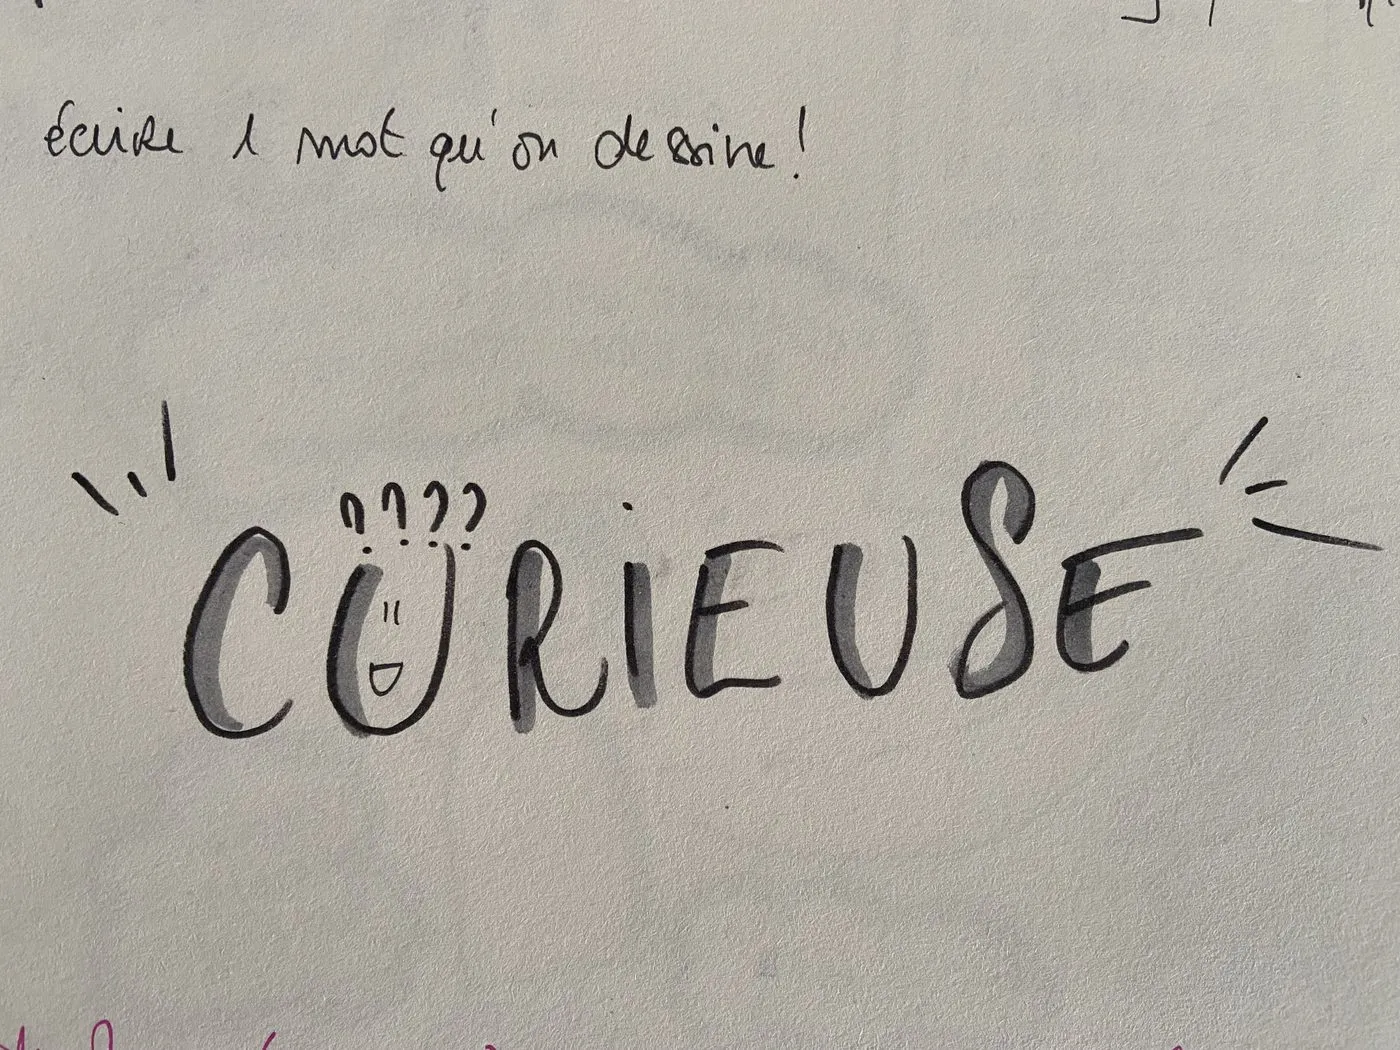 écrire 1 mot qu'on dessine !
????
CURiEUSE